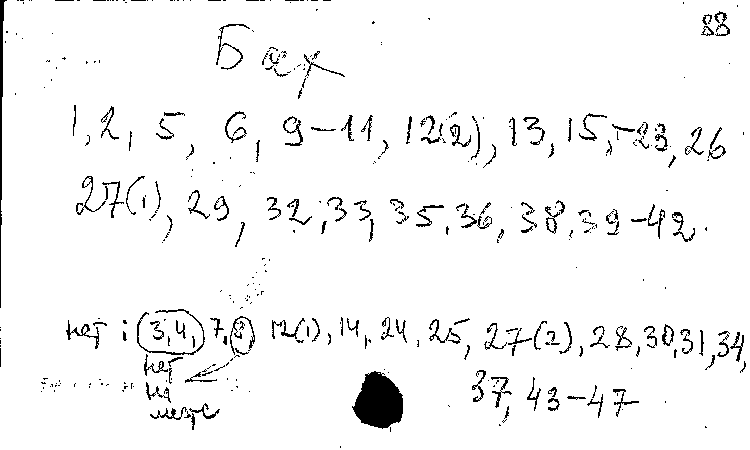 88
Бах
1, 2, 5, 6, 9-11, 12(2), 13, 15,-23, 26
27(1), 29, 32, 33, 35, 36, 38, 39-42.
нет: 3,4, 7,8, 12(1), 14, 24, 25, 27(2), 28, 30, 31, 34,
нет
на
месте
37, 43-47